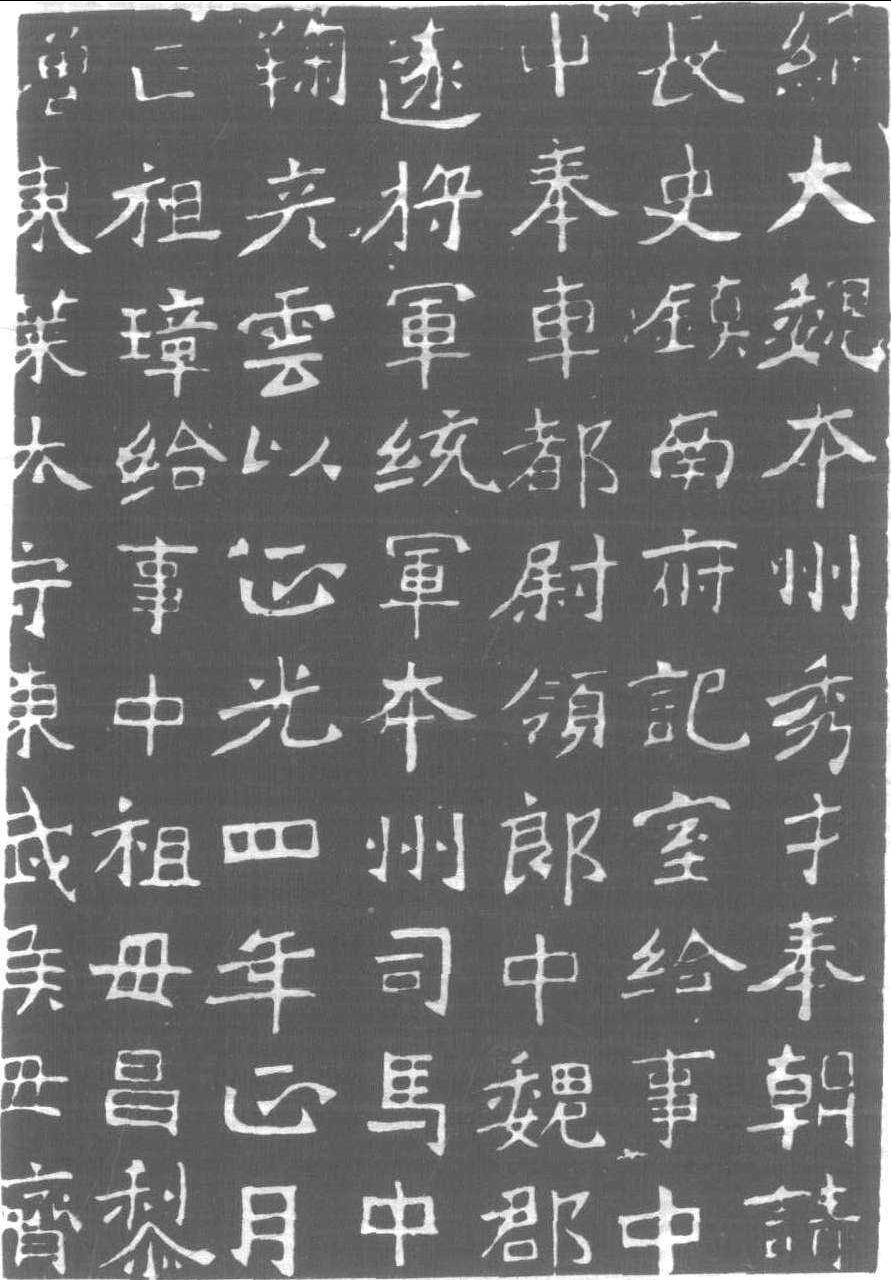 大魏本州秀才奉朝請
長史鎮南府記室給事中
中奉車都尉領郎中魏郡
遠將軍統軍本州司馬中
鞠彦雲以正光四年正月
亡祖璋給事中祖母昌黎
東萊太守東武侯母齊